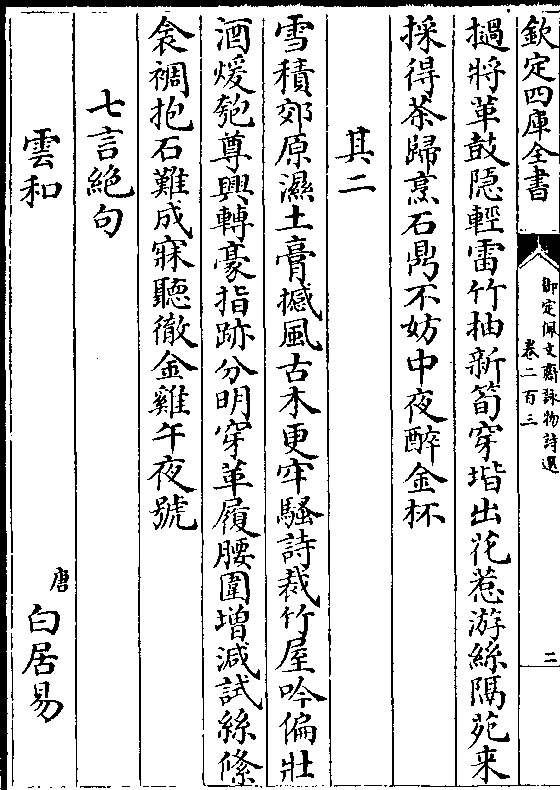 欽定四庫全書
御定佩文齋詠物詩選
卷二百三
二
撾將革鼓隠輕雷竹抽新筍穿堦出花惹游絲隔苑来
採得茶歸烹石鼎不妨中夜醉金杯
其二
雪積郊原濕土膏撼風古木更牢騷詩裁竹屋吟偏壯
酒煖匏尊興轉豪指跡分明穿革履腰圍增減試絲絛
衾裯抱石難成寐聽徹金雞午夜號
七言絶句
雲和
唐白居易